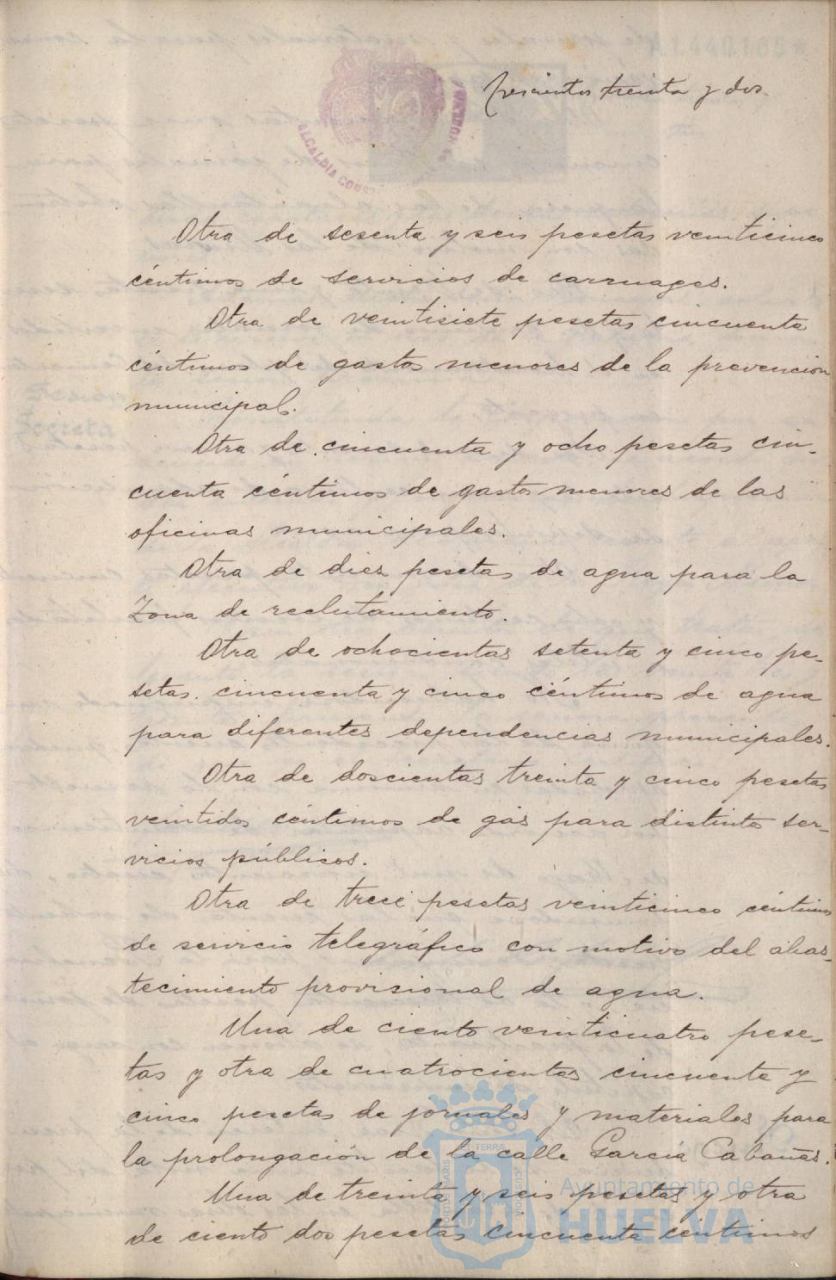 trescientos treinta y dos
ALCALDIA CONS
Otra de sesenta y seis pesetas veinticinco
céntimos de servicios de carruages.
Otra de veintisiete pesetas cincuenta
céntimos de gastos menores de la prevención
municipal.
Otra de cincuenta y ocho pesetas cin-
cuenta céntimos de gastos menores de las
oficinas municipales.
Otra de diez pesetas de agua para la
Zona de reclutamiento.
Otra de ochocientas setenta y cinco pe-
setas cincuenta y cinco céntimos de agua
para diferentes dependencias municipales.
Otra de doscientas treinta y cinco pesetas
veintidos céntimos de gas para distintos ser-
vicios públicos.
Otra de trece pesetas veinticinco céntimos
de servicio telegráfico con motivo del abas-
tecimiento provisional de agua.
Una de ciento veinticuatro pese-
tas y otra de cuatrocientas cincuenta y
cinco pesetas de jornales y materiales para
la prolongación de la calle García Cabañas.
Una de treinta y seis pesetas y otra
de ciento dos pesetas cincuenta centimos
TERRA
Ayuntamiento de
HUELVA